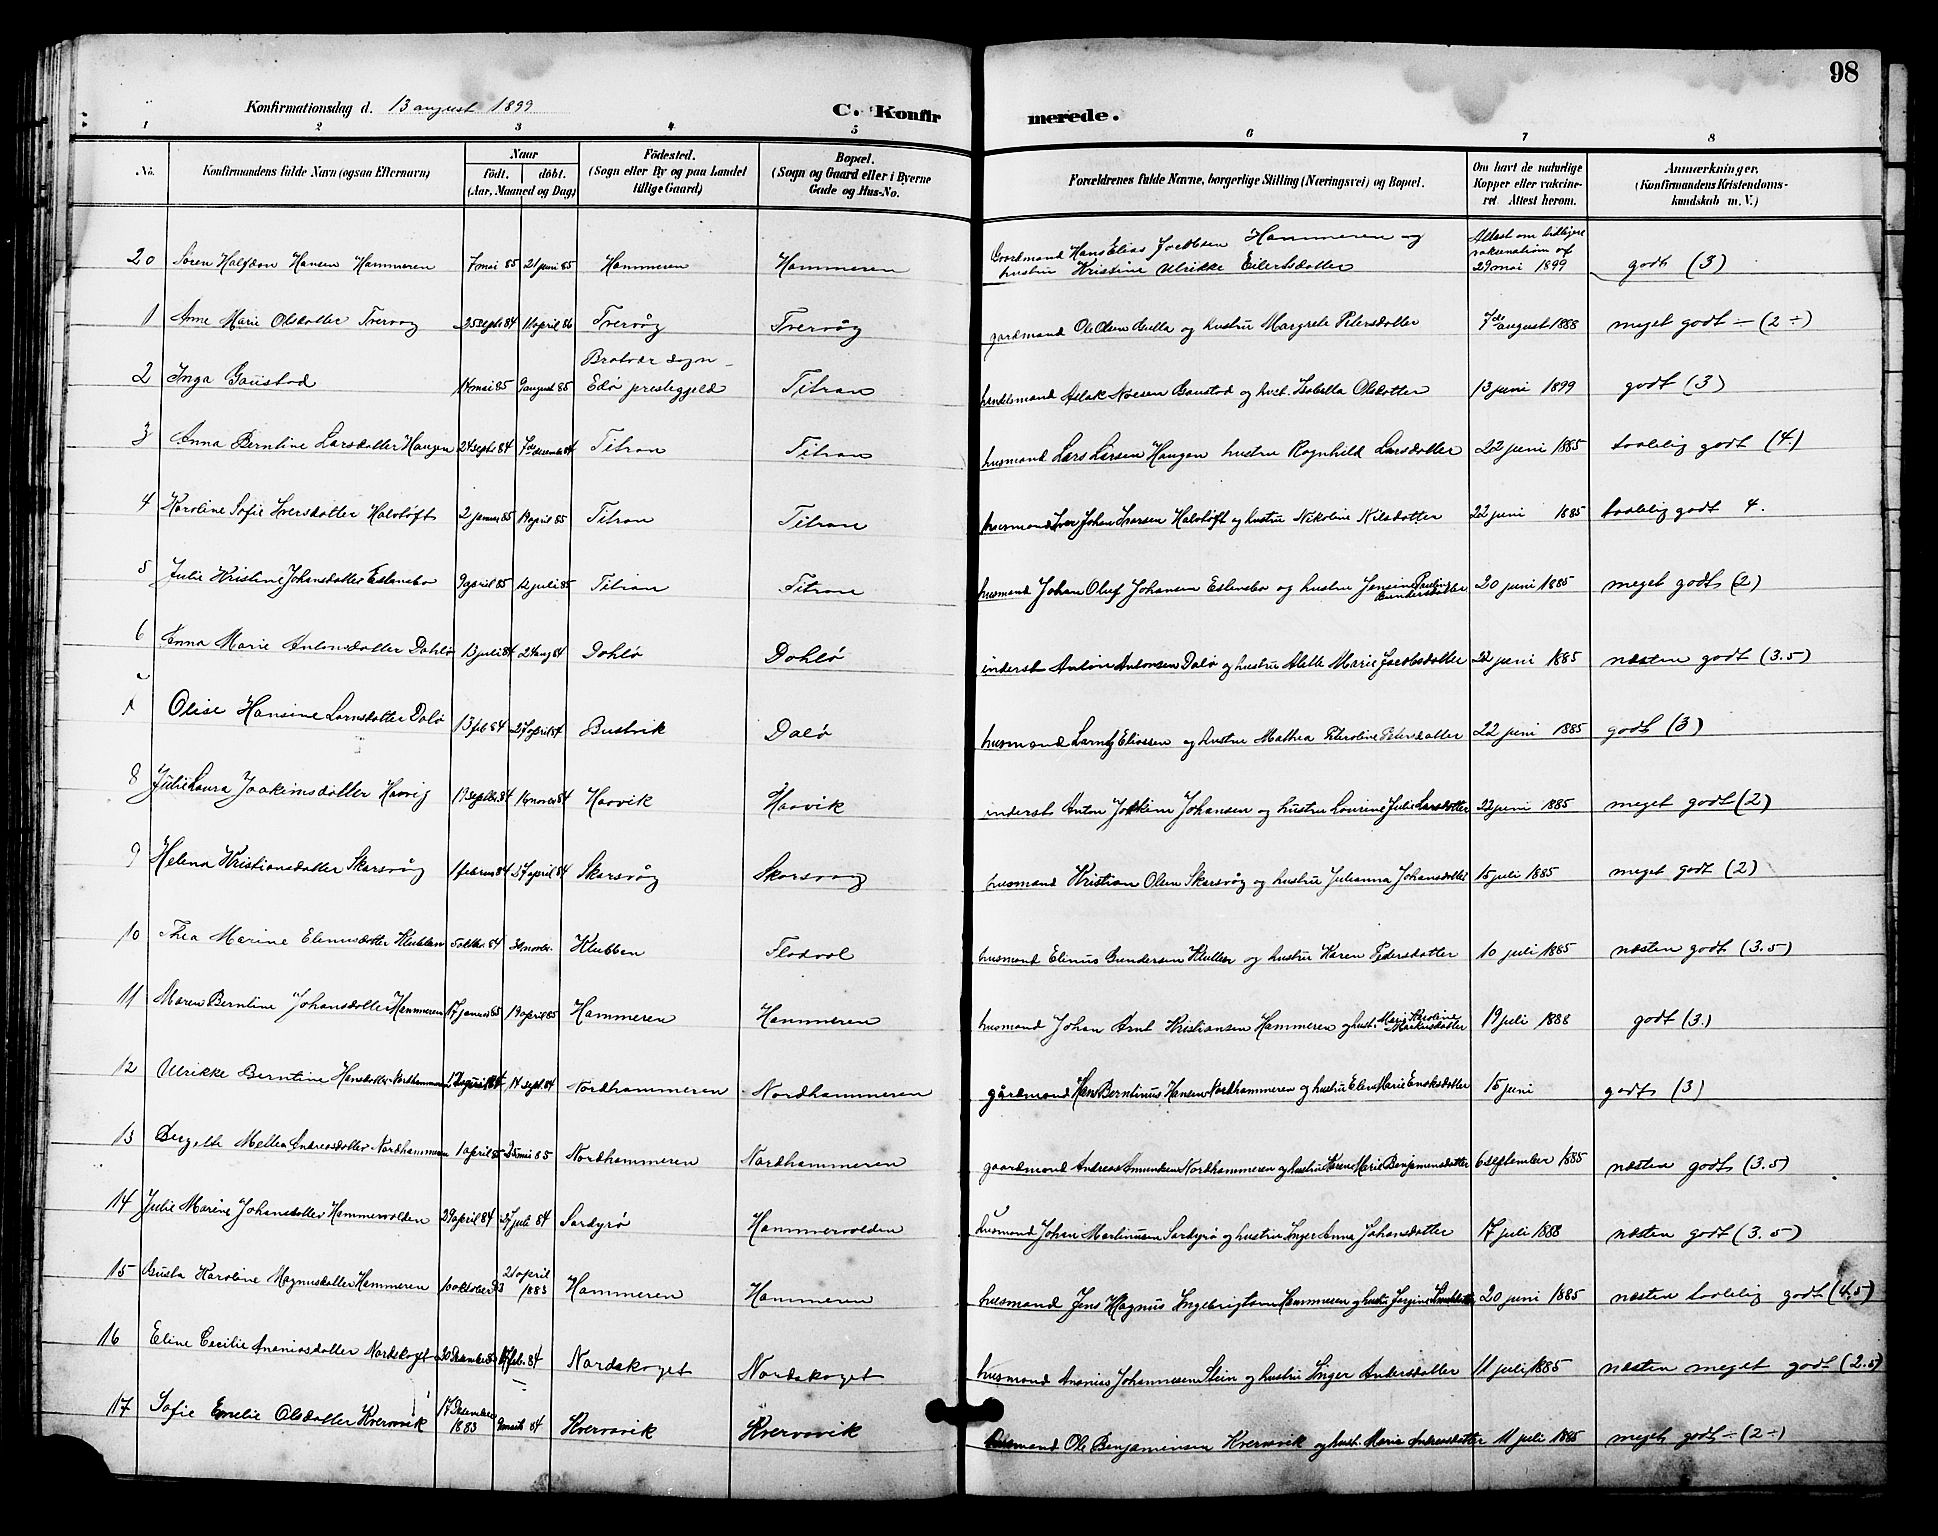 98
Konfirmationsdag d. 13 august 1899
C. Konfirmerede.
1 2 3 4 5 6 7 8
No. Konfirmandens fulde Navn (ogsaa Efternavn) Naar födt. döbt. (Aar, Maaned og Dag) Födested. (Sogn eller By og paa Landet tillige Gaard) Bopæl. (Sogn og Gaard eller i Byerne Gade og Hus-No. Forældrenes fulde Navne, borgerlige Stilling (Næringsvei) og Bopæl. Om havt de naturlige Kopper eller vakcineret. Attest herom. Anmærkninger. (Konfirmandens Kristendomskundskab m. V.)
20 Søren Halfdan Hansen Hammeren 7 mai 85 21 juni 85 Hammeren Hammeren Gaardmand Hans Elias Jacobsen Hammeren og hustru Kristine Ulrikke Eilertsdatter Attest om tidligere vakcination af 29 mai 1899 godt (3)
1 Anne Marie Olsdatter Tvervaag 25 sept 84 11 april 86 Tvervåg Tvervåg gardmand Ole Olsen og hustru Margrete Petersdatter 7de august 1888 meget godt ÷ (2 ÷)
2 Inga Gaustad 14 mai 85 9 august 85 Bratvær sogn Edø prestegjeld Titran Aslak Noesen Gaustad og hust. Isabella Olsdatter 13 juni 1899 godt (3)
3 Anna Berntine Larsdatter Haugen 24 sept 84 7de december 84 Titran Titran husmand Lars Larsen Haugen hustru Ragnhild Larsdatter 22 juni 1885 taalelig godt (4.)
4 Karoline Sofie Iversdatter Halvtoft 2 januar 85 april 85 Titran Titran husmand Iver Johan Ivarsen Halvtoft og hustru Nikoline Nilsdatter 22 juni 1885 taalelig godt 4.
5 Julie Kristine Johansdatter Eslensbo 9 april 85 12 juli 85 Titran Titran husmand Johan Oluf Johansen Eslensbo og hustru Jensine Pauline Gundersdatter 20 juni 1885 meget godt (2)
6 Anna Marie Antonsdatter Dahlø 13 juli 84 24 aug 84 Dahlø Dahlø inderst Anton Antonsen Dalø og hustru Alette Marie Jacobsdatter 22 juni 1885 næsten godt (3.5)
7 Olise Hansine Larnsdatter Dalø 13 feb 84 27 april 84 Bustvik Dalø husmand Eliassen og hustru Mathea Peteroline Petersdatter 22 juni 1885 godt (3)
8 Julie Laura Joakimsdatter Haavig 19 septbr. 84 16 novbr 84 Haavik Haavik inderst Anton Jokkim Johansen og hustru Laurine Julie Larsdatter 22 juni 1885 meget godt (2)
9 Helena Kristiansdatter Skarsvåg 1 februar 84 27 april 84 Skarsvåg Skarsvaag husmand Kristian Olsen Skarsvåg og hustru Julianna Johansdatter 15 juli 1885 meget godt (2)
10 Thea Marine Elinusdatter Klubben 5 oktbr. 84 30 novbr. Klubben Flodval husmand Elinus Gundersen Klubben og hustru Karen Pedersdatter 10 juli 1885 næsten godt (3.5)
11 Maren Berntine Johansdatter Hammeren 17 januar 85 19 april 85 Hammeren Hammeren husmand Johan Arnt Kristiansen Hammeren og hust. Marie Karoline Markusdatter 19 juli 1888 godt (3.)
12 Ulrikke Berntine Hansdatter Nordhammeren 12 august 84 14 sept. 84 Nordhammeren Nordhammeren gårdmand Hans Berntinus Hansen Nordhammeren og hustru Elen Marie Enoksdatter 15 juni godt (3)
13 Bergitte Mettea Andreasdatter Nordhammeren 1 april 85 25 mai 85 Nordhammeren Nordhammeren gaardmand Andreas Amundsen Nordhammeren og hustru Karen Marie Benjaminsdatter 6 september 1885 næsten godt (3.5)
14 Julie Marine Johansdatter Hammervolden 29 april 84 27 juli 84 Sardyrø Hammervolden husmand Johan Martinusen Sardyrø og hustru Inger Anna Johansdatter 17 juli 1888 næsten godt (3.5)
15 Gusta Karoline Magnusdatter Hammeren 10 oktober 21 april 1883 Hammeren Hammeren husmand Jens Magnus Ingebrigtsen Hammeren og hustru Jørgine 20 juni 1885 næsten taalelig godt (4.5)
16 Eline Cecilie Ananiasdatter Nordskoget 20 December 83 17 feb. 84 Nordskoget Nordskoget husmand Ananias Johannesen Stein og hustru Inger Andersdatter 11 juli 1885 næsten meget godt (2.5)
17 Sofie Emelie Olsdatter Kvervavik 17 December 1883 9 marts 84 Kvervavik Kvervavik husmand Ole Benjaminsen Kvervavik og hust. Marie Andreasdatter 11 juli 1885 meget godt ÷ (2 ÷)